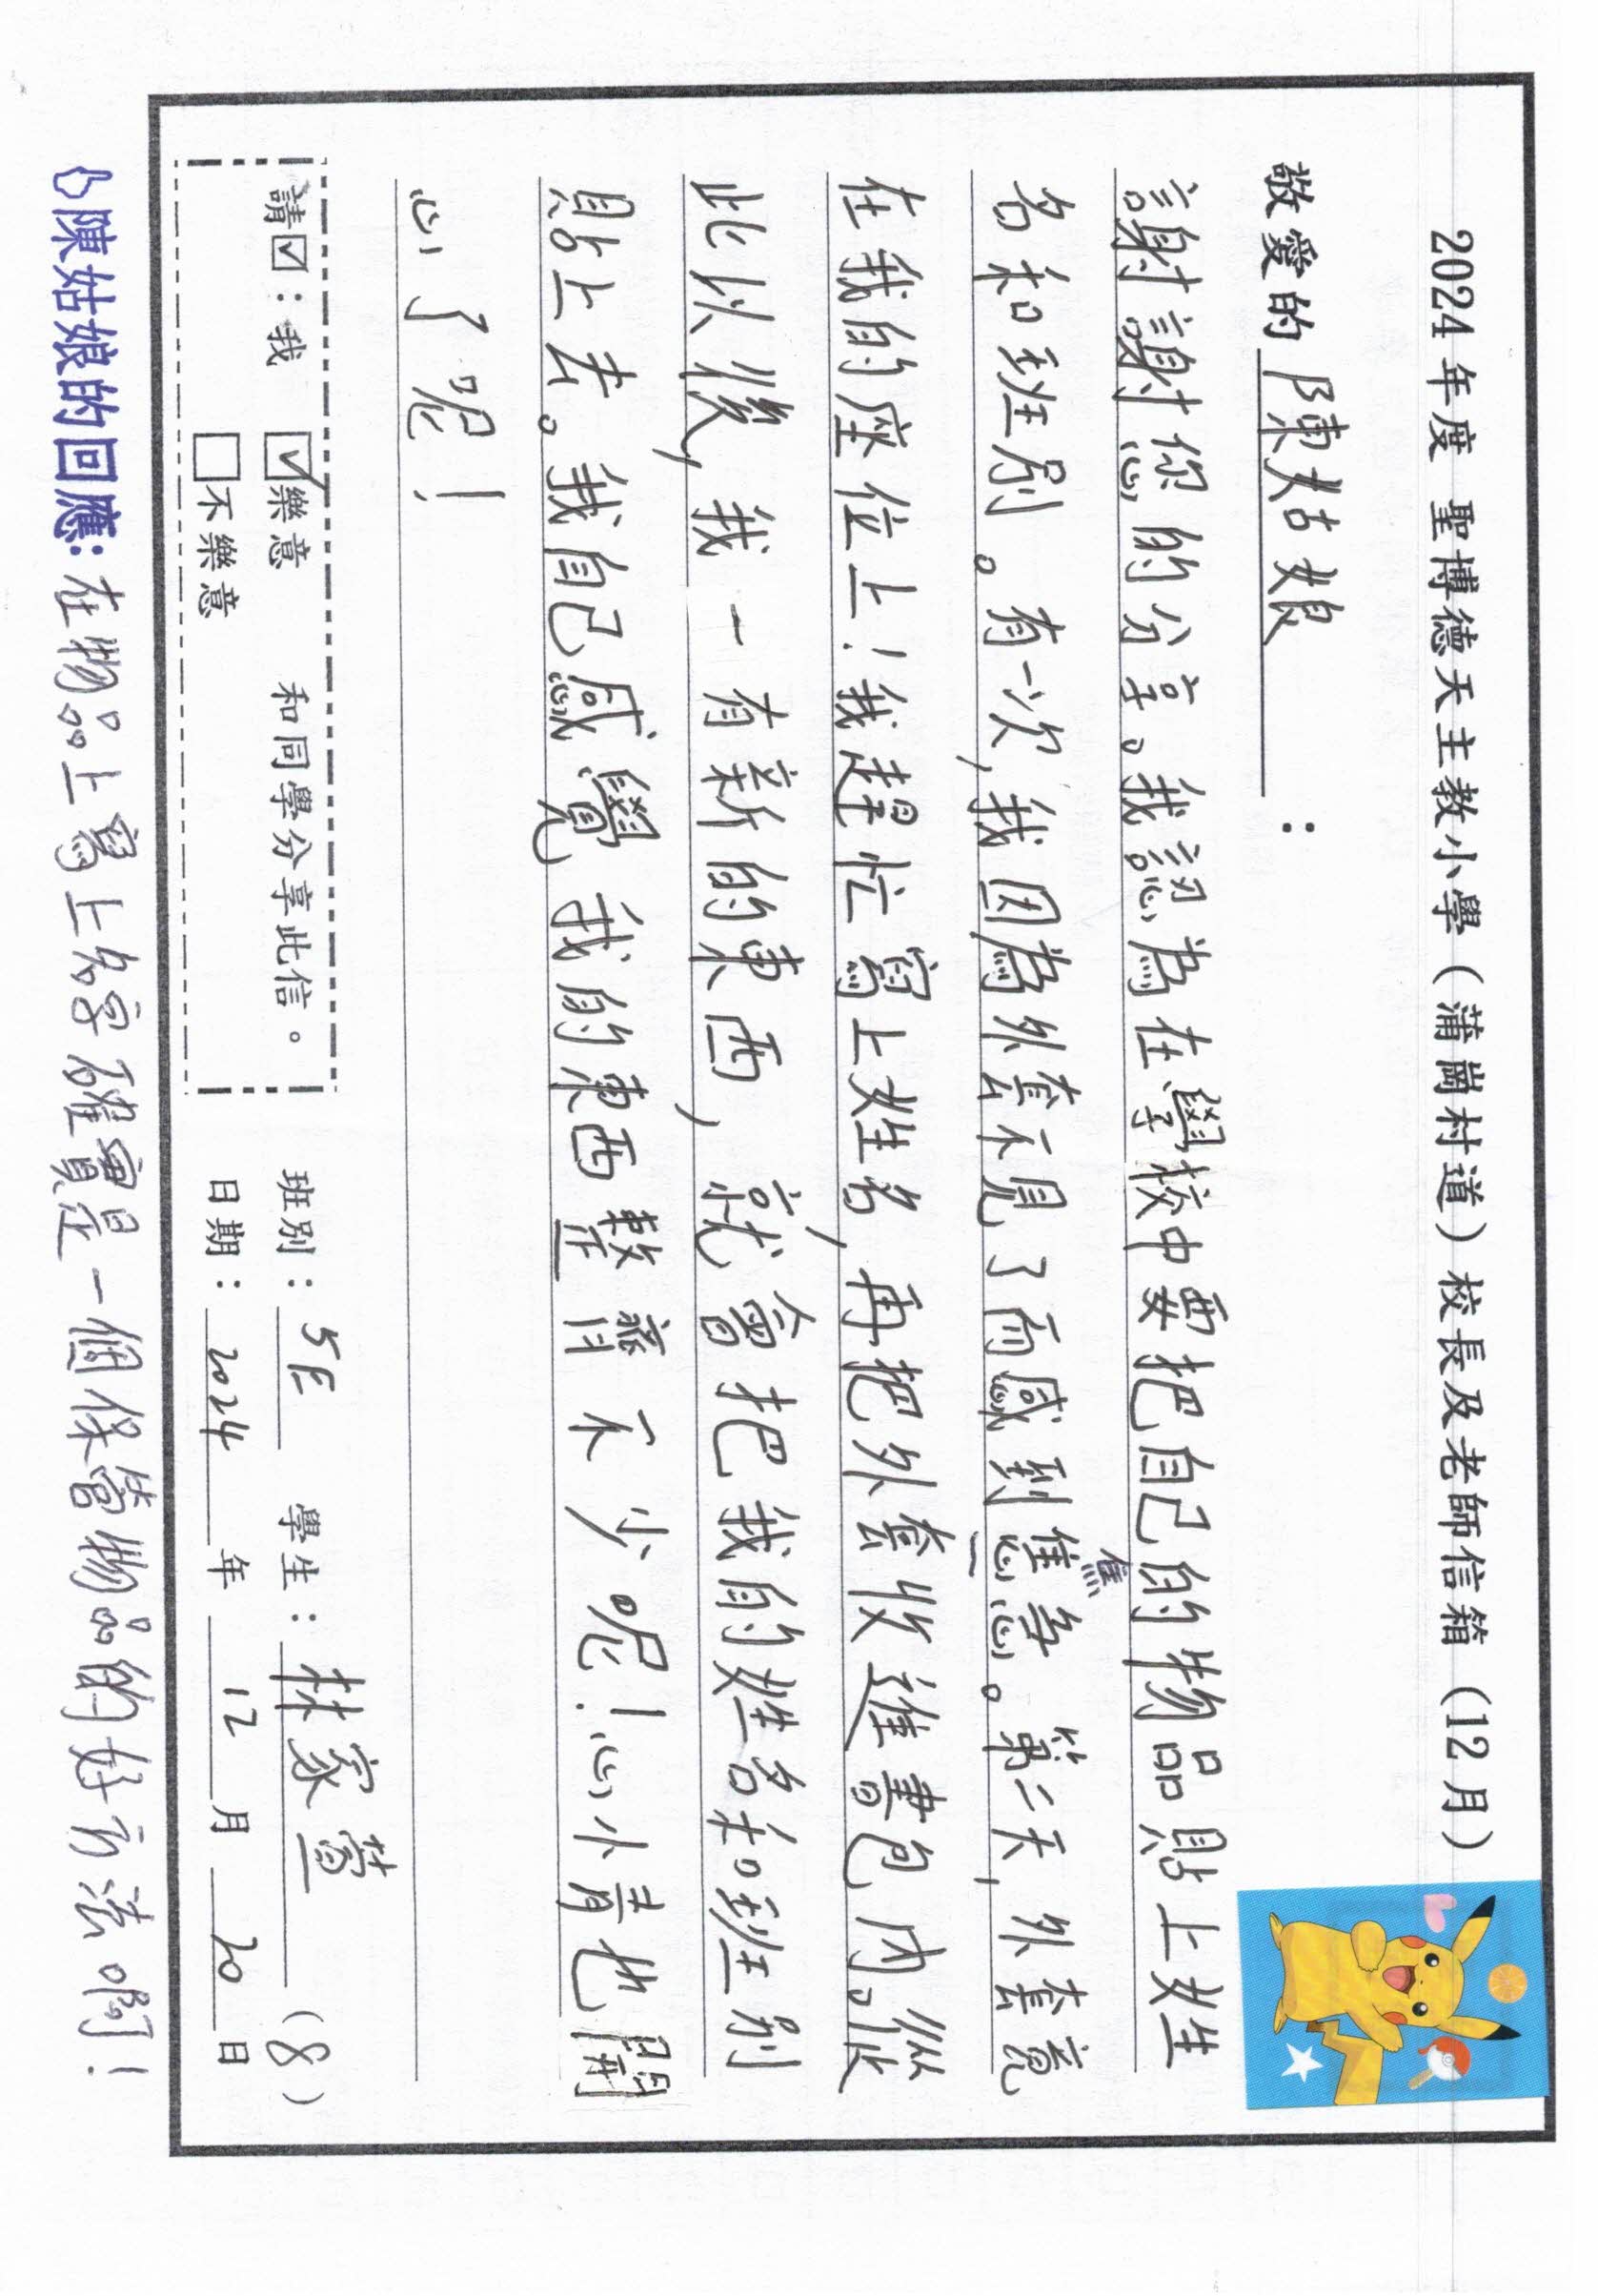 2024年度 聖博德天主教小學（蒲崗村道）校長及老師信箱（12月）
敬愛的 陳姑娘 ：
謝謝您的分享。我認為在學校中要把自己的物品貼上姓
名和班別。有一次，我因為外套不見了而感到憔急。第二天，外套竟
焦
在我的座位上！我趕忙寫上姓名，再把外套收進書包內。從
此以後，我一有新的東西，就會把我的姓名和班別
貼上去。我自己感覺我的東西整齊不少呢！心情也開
心了呢！
請☑：我 ☑樂意 和同學分享此信。
□不樂意
班別：5E 學生：林家萱 （8）
日期：2024年12月20日
陳姑娘的回應：在物品上寫上名字確實是一個保管物品的好方法啊！